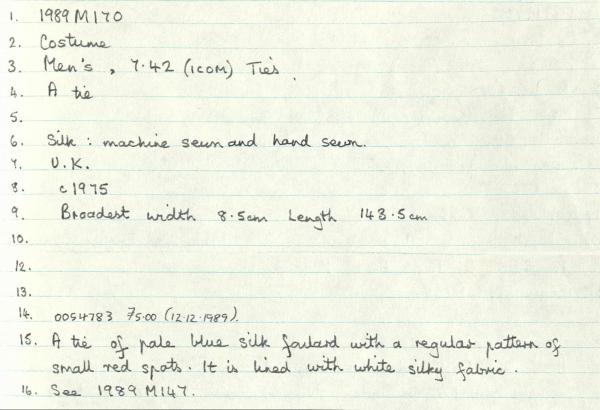 1. 1989 M170
2. Costume
3. Men's, 7.42 (ICOM) Ties.
4. A tie
5.
6. Silk : machine sewn and hand sewn.
7. U.K.
8. c1975
9. Broadest width 8.5cm Length 143.5cm
10.
12.
13.
14. 0054783 75.00 (12.12.1989).
15. A tie of pale blue silk foulard with a regular pattern of
small red spots. It is lined with white silky fabric.
16. See 1989 M147.